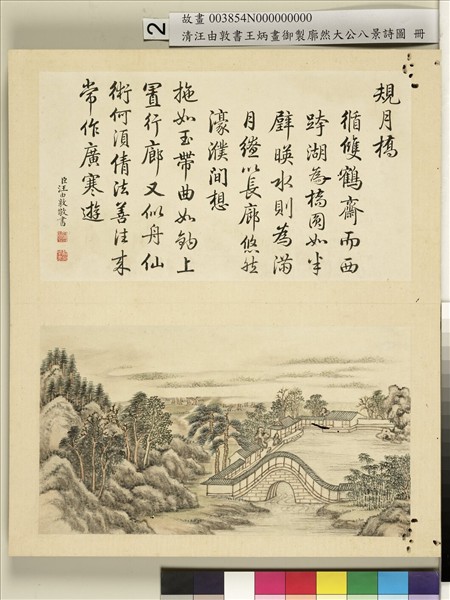 2
故畫 003854N000000000
清汪由敦書王炳畫御製廓然大公八景詩圖 冊
規月橋
循雙鶴齋而西
跨湖為橋圓如半
璧暎水則為滿
月繚以長廊悠然
濠濮間想
拖如玉帶曲如鉤上
置行廊又似舟仙
術何須倩法善往來
常作廣寒遊
臣汪由敦敬書